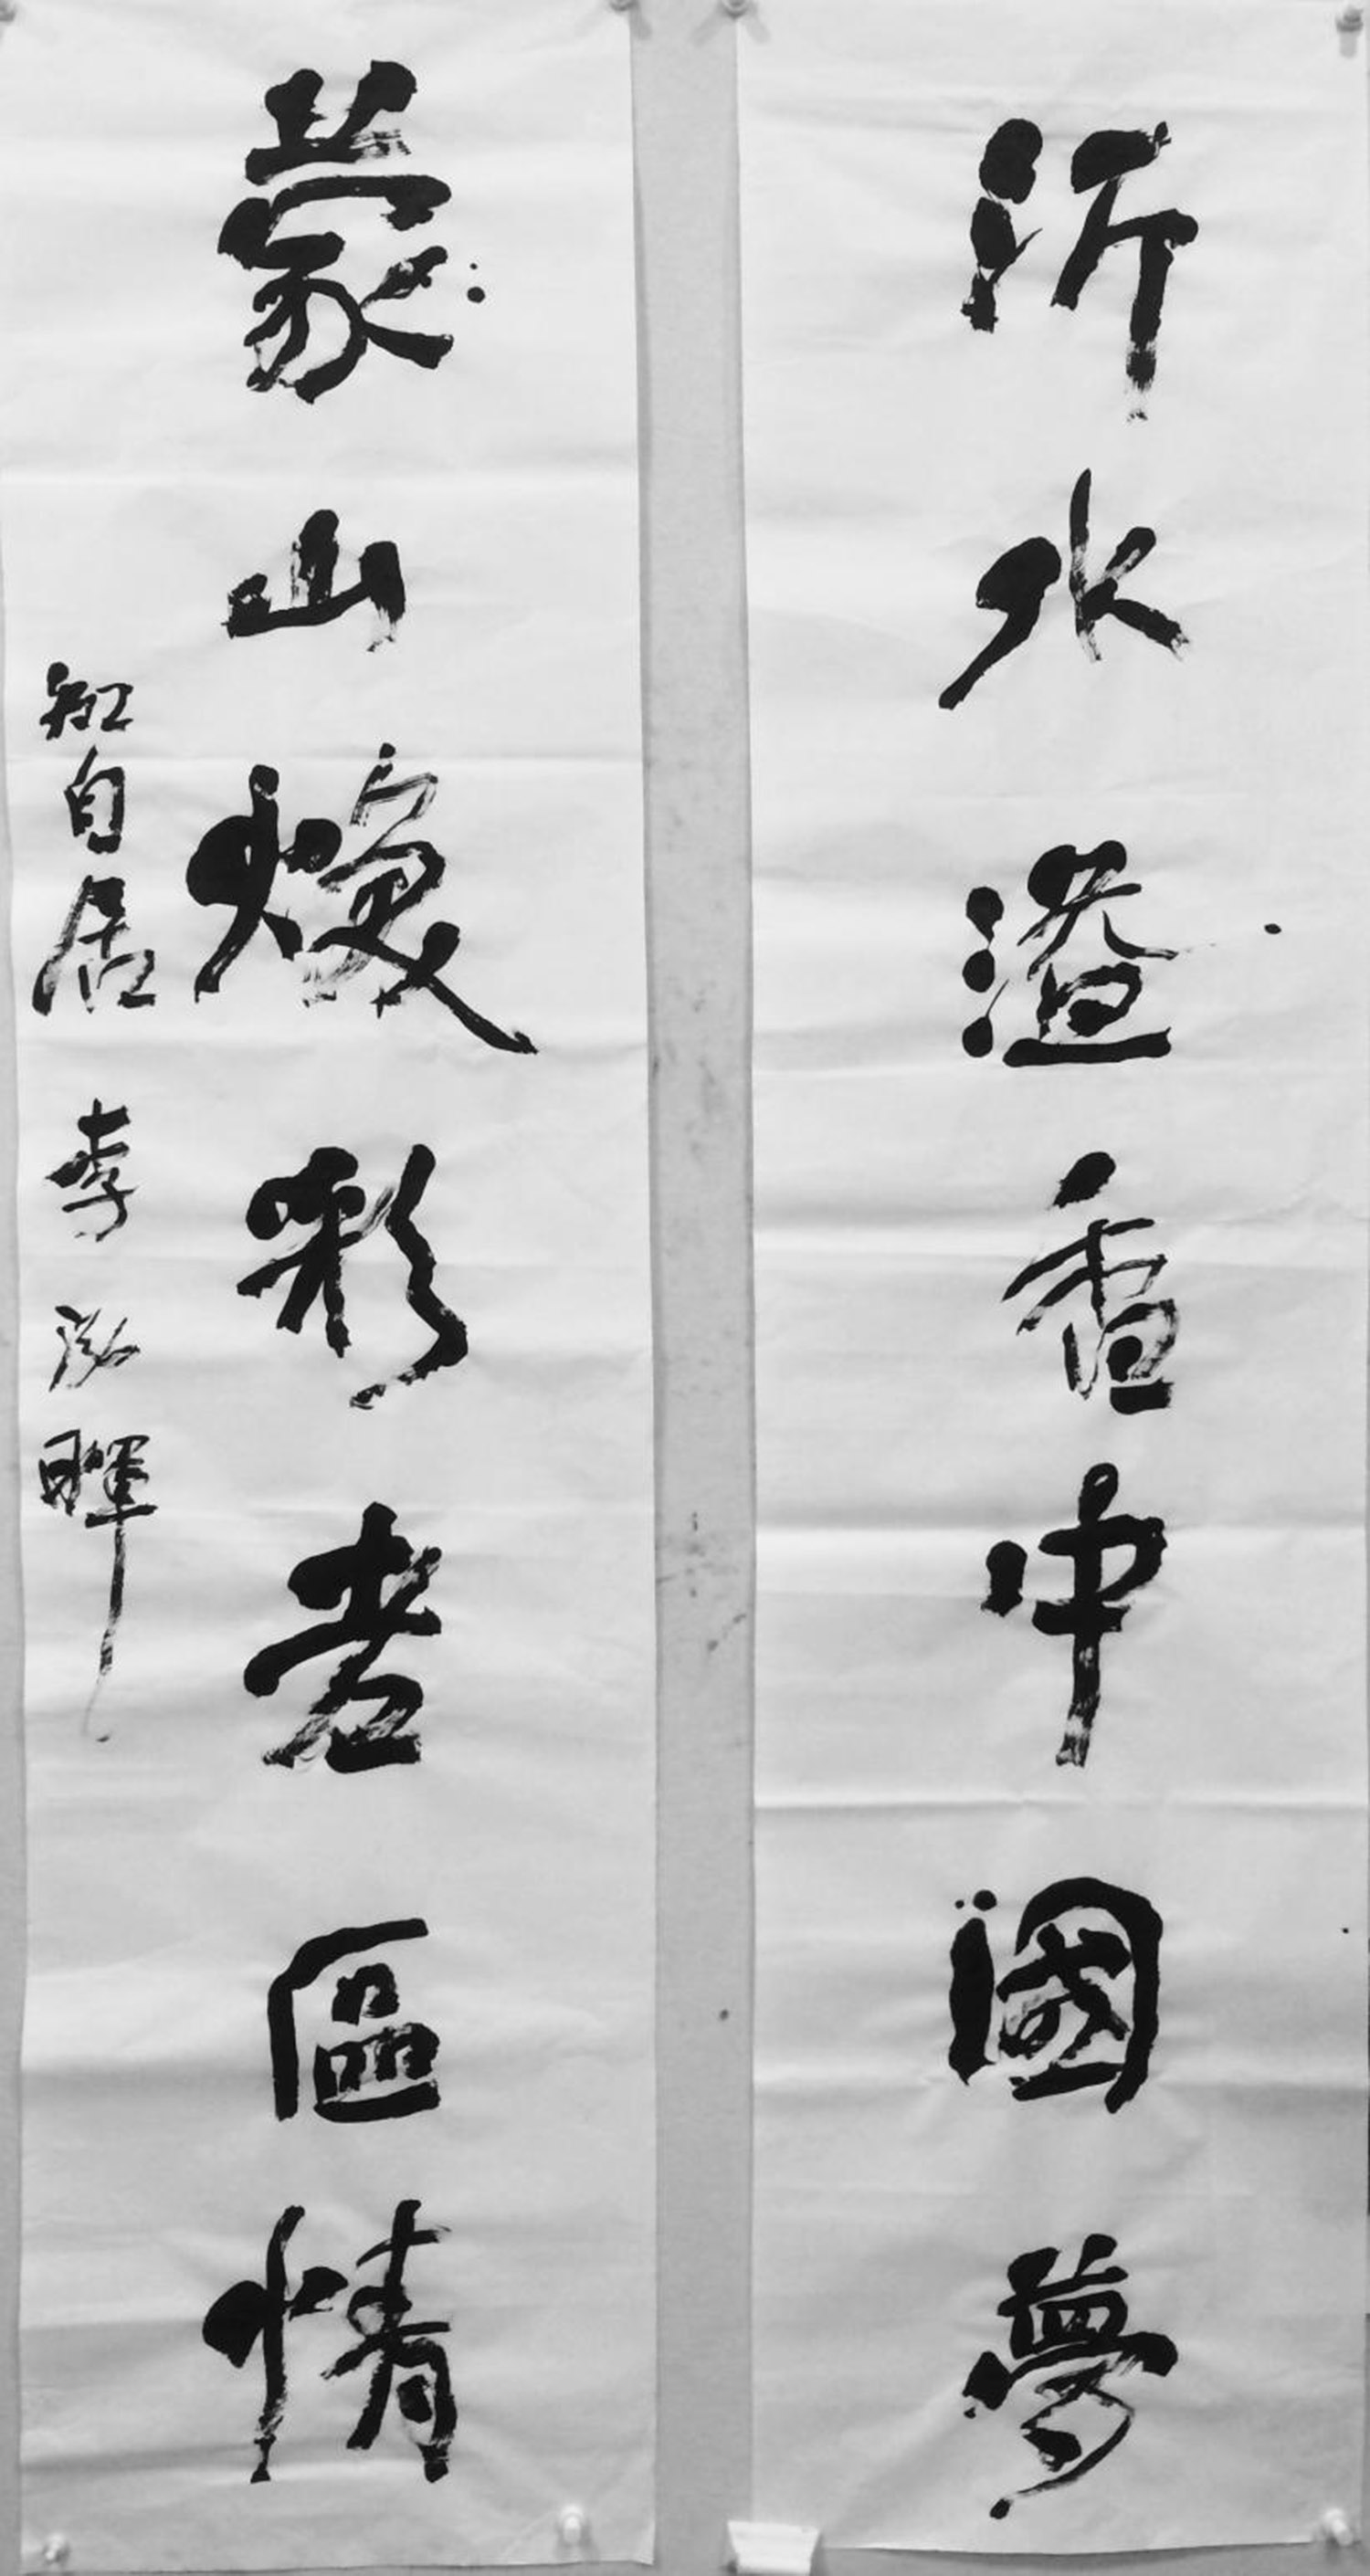 沂水溢香中國夢
蒙山煥彩老區情
知自居 李泓暉